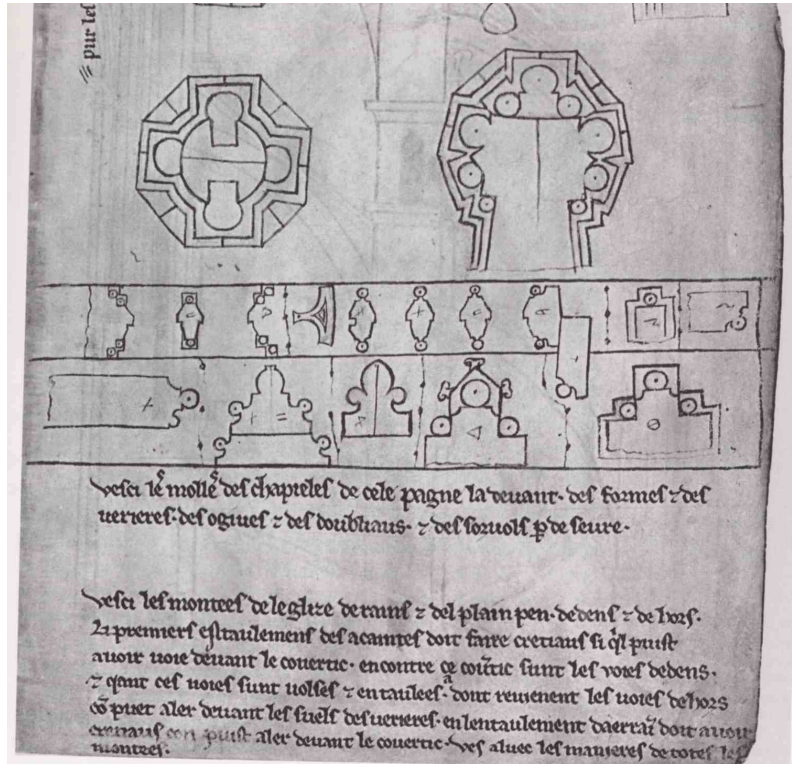 pur les
Vesci les molles des chapieles de cele pagne la devant · des formes ⁊ des
verieres · des ogives ⁊ des doubliaus · ⁊ des sorvols p̲ deseure ·
Vesci les montees de leglize de rains ⁊ del plain pen · dedens ⁊ de hors ·
Li premiers estaulemens des acaintes doit faire cretiaus si q̃l puist
avoir voie devant le covertic · encontre ce covertic sunt les voies dedens ·
⁊ qant ces voies sunt volses ⁊ entaulees · adont revienent les voies dehors
cõ puet aler devant les suels des verieres · en lentaulement daerrai doit avoir
cretiaus con puist aler devant le covertic · ves aluec les manieres de totes les
montees ·